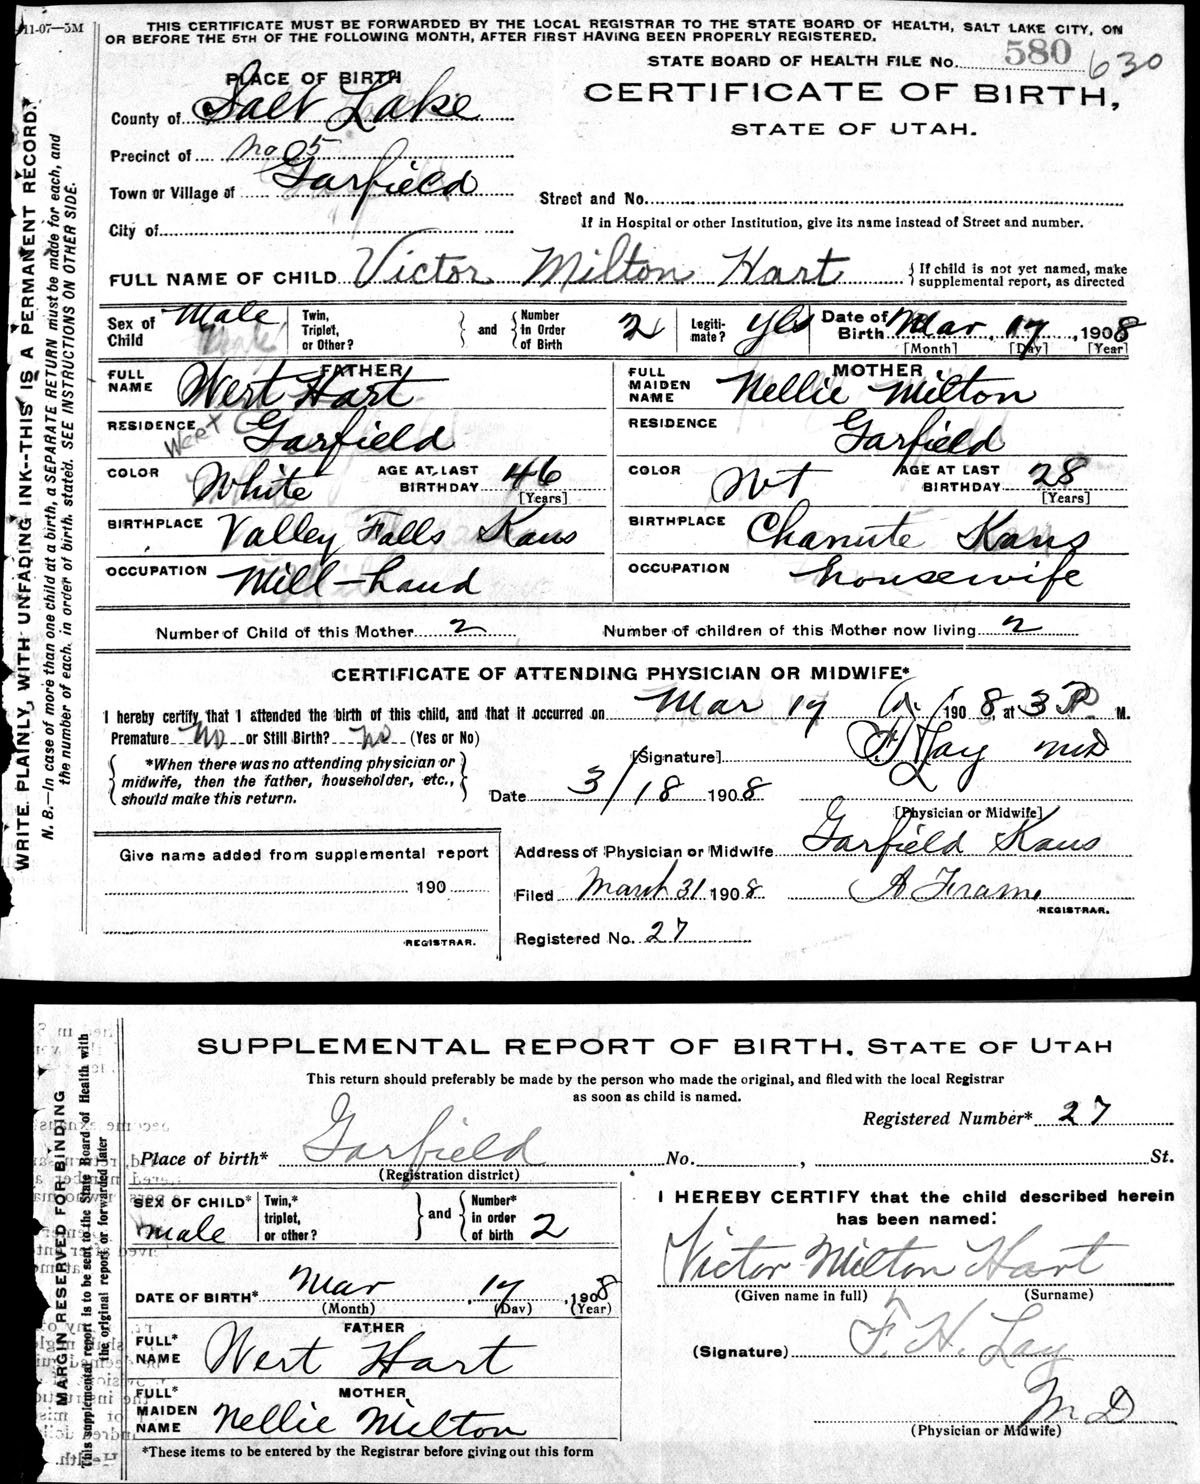 11-07—5M
THIS CERTIFICATE MUST BE FORWARDED BY THE LOCAL REGISTRAR TO THE STATE BOARD OF HEALTH, SALT LAKE CITY, ON
OR BEFORE THE 5TH OF THE FOLLOWING MONTH, AFTER FIRST HAVING BEEN PROPERLY REGISTERED.
STATE BOARD OF HEALTH FILE No. 580 630
PLACE OF BIRTH
CERTIFICATE OF BIRTH,
STATE OF UTAH.
County of Salt Lake
Precinct of no 05
Town or Village of Garfield
Street and No.
City of
If in Hospital or other Institution, give its name instead of Street and number.
FULL NAME OF CHILD Victor Milton Hart
{If child is not yet named, make supplemental report, as directed
Sex of Child Male Twin, Triplet, or Other? } and { Number in Order of Birth 2 Legitimate? yes Date of Birth Mar. 17, 1908
[Month] [Day] [Year]
FATHER
FULL NAME Wert Hart
RESIDENCE Wert Garfield
COLOR White AGE AT LAST BIRTHDAY 46 [Years]
BIRTHPLACE Valley Falls Kans
OCCUPATION Mill-hand
MOTHER
FULL MAIDEN NAME Nellie Milton
RESIDENCE Garfield
COLOR Wt AGE AT LAST BIRTHDAY 28 [Years]
BIRTHPLACE Chanute Kans
OCCUPATION housewife
Number of Child of this Mother 2 Number of children of this Mother now living 2
CERTIFICATE OF ATTENDING PHYSICIAN OR MIDWIFE*
I hereby certify that I attended the birth of this child, and that it occurred on Mar 17 1908, at 3 P. M.
Premature No or Still Birth? no (Yes or No)
{*When there was no attending physician or midwife, then the father, householder, etc., should make this return.}
[Signature] Lay MD
Date 3/18 1908
[Physician or Midwife]
Give name added from supplemental report
190
REGISTRAR.
Address of Physician or Midwife Garfield Kans
Filed March 31 1908
REGISTRAR.
Registered No. 27
WRITE PLAINLY, WITH UNFADING INK--THIS IS A PERMANENT RECORD.
N. B.—In case of more than one child at a birth, a SEPARATE RETURN must be made for each, and
the number of each, in order of birth, stated. SEE INSTRUCTIONS ON OTHER SIDE.
SUPPLEMENTAL REPORT OF BIRTH, STATE OF UTAH
This return should preferably be made by the person who made the original, and filed with the local Registrar
as soon as child is named.
Registered Number* 27
Place of birth* Garfield No. , St.
(Registration district)
SEX OF CHILD* male Twin,* triplet, or other? } and { Number* in order of birth 2
DATE OF BIRTH* Mar 17, 1908
(Month) (Day) (Year)
FATHER
FULL* NAME Wert Hart
MOTHER
FULL* MAIDEN NAME Nellie Milton
*These items to be entered by the Registrar before giving out this form
I HEREBY CERTIFY that the child described herein
has been named:
Victor Milton Hart
(Given name in full) (Surname)
(Signature) F. H. Lay
MD
(Physician or Midwife)
MARGIN RESERVED FOR BINDING
This supplemental report is to be sent to the State Board of Health with
the original report or forwarded later